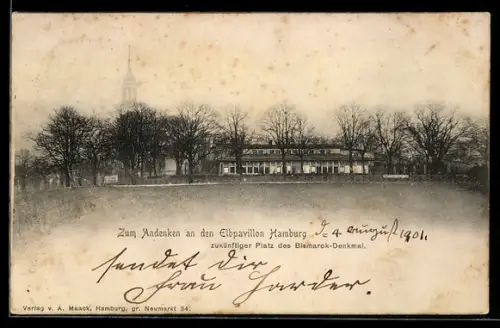 Zum Andenken an den Elbpavillon Hamburg d= 4 August 1901.
zukünftiger Platz des Bismarck-Denkmal.
sendet Dir
Frau Harder.
Verlag v. A. Maack, Hamburg, gr. Neumarkt 34.